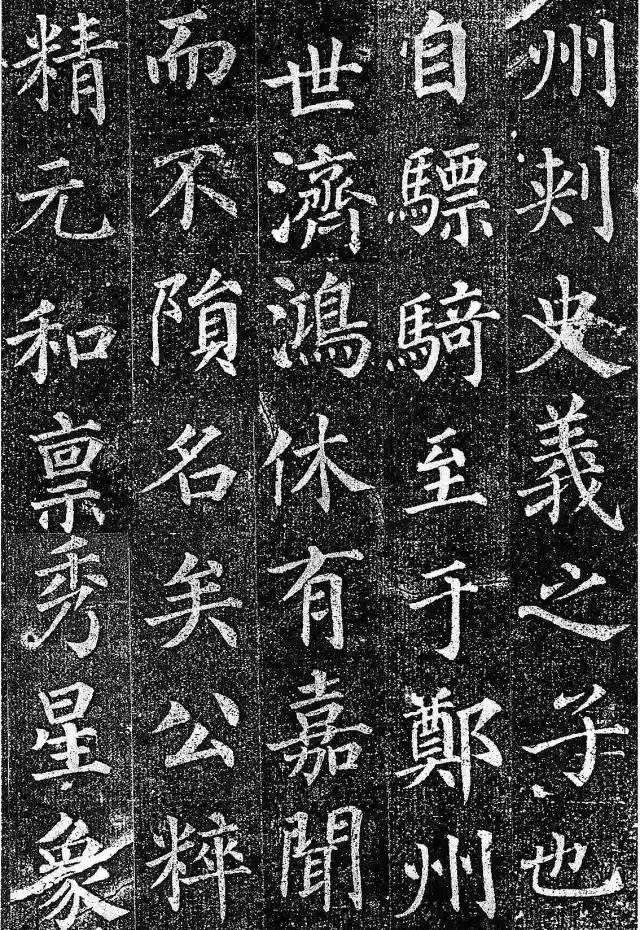 州刺史義之子也
自驃騎至于鄭州
世濟鴻休有嘉聞
而不隕名矣公粹
精元和禀秀星象